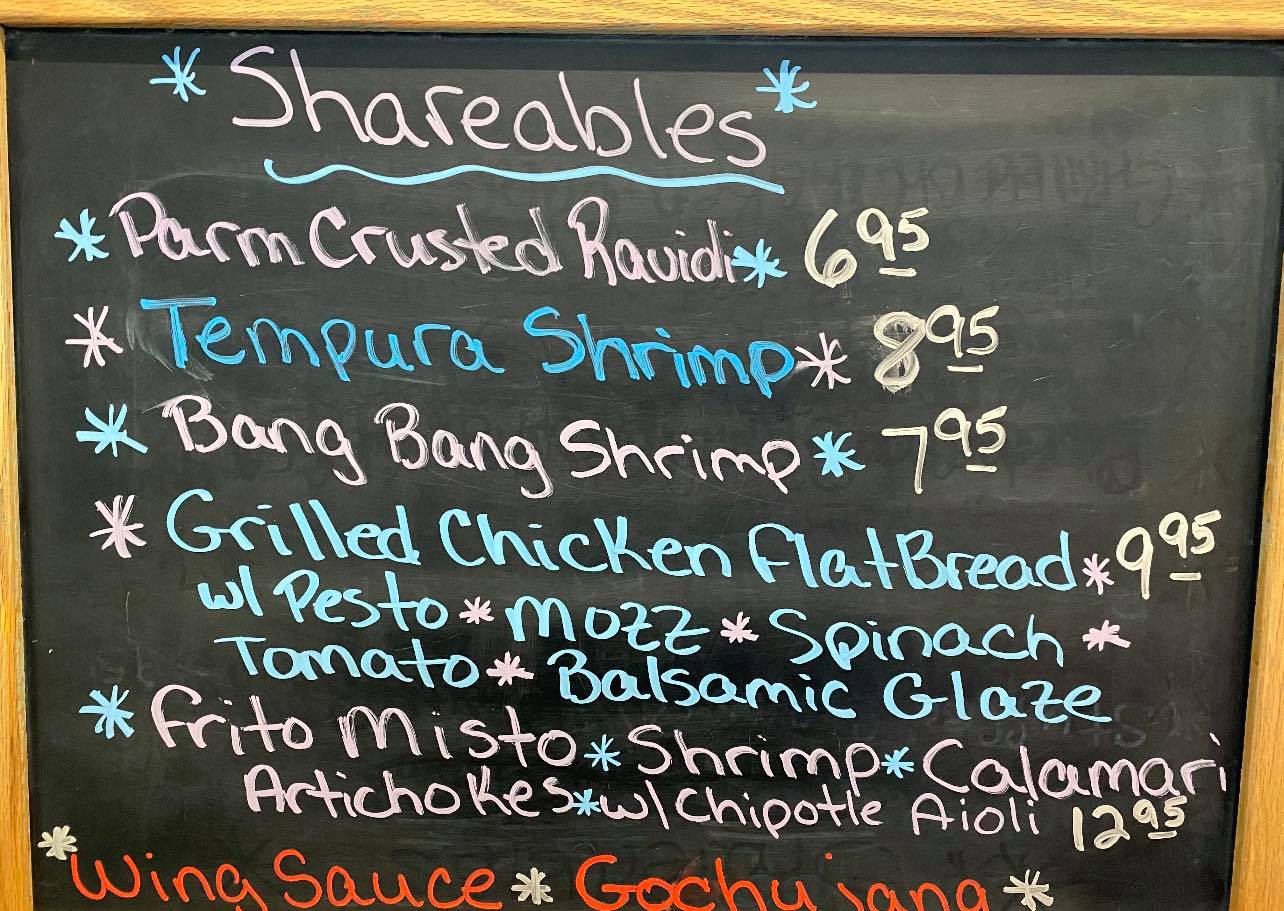 * Shareables *
* Parm Crusted Ravioli * 6 95
* Tempura Shrimp * 8 95
* Bang Bang Shrimp * 7 95
* Grilled Chicken FlatBread * 9 95
w/ Pesto * Mozz * Spinach *
Tomato * Balsamic Glaze
* Frito Misto * Shrimp * Calamari
Artichokes * w/ Chipotle Aioli 12 95
* Wing Sauce * Gochujang *